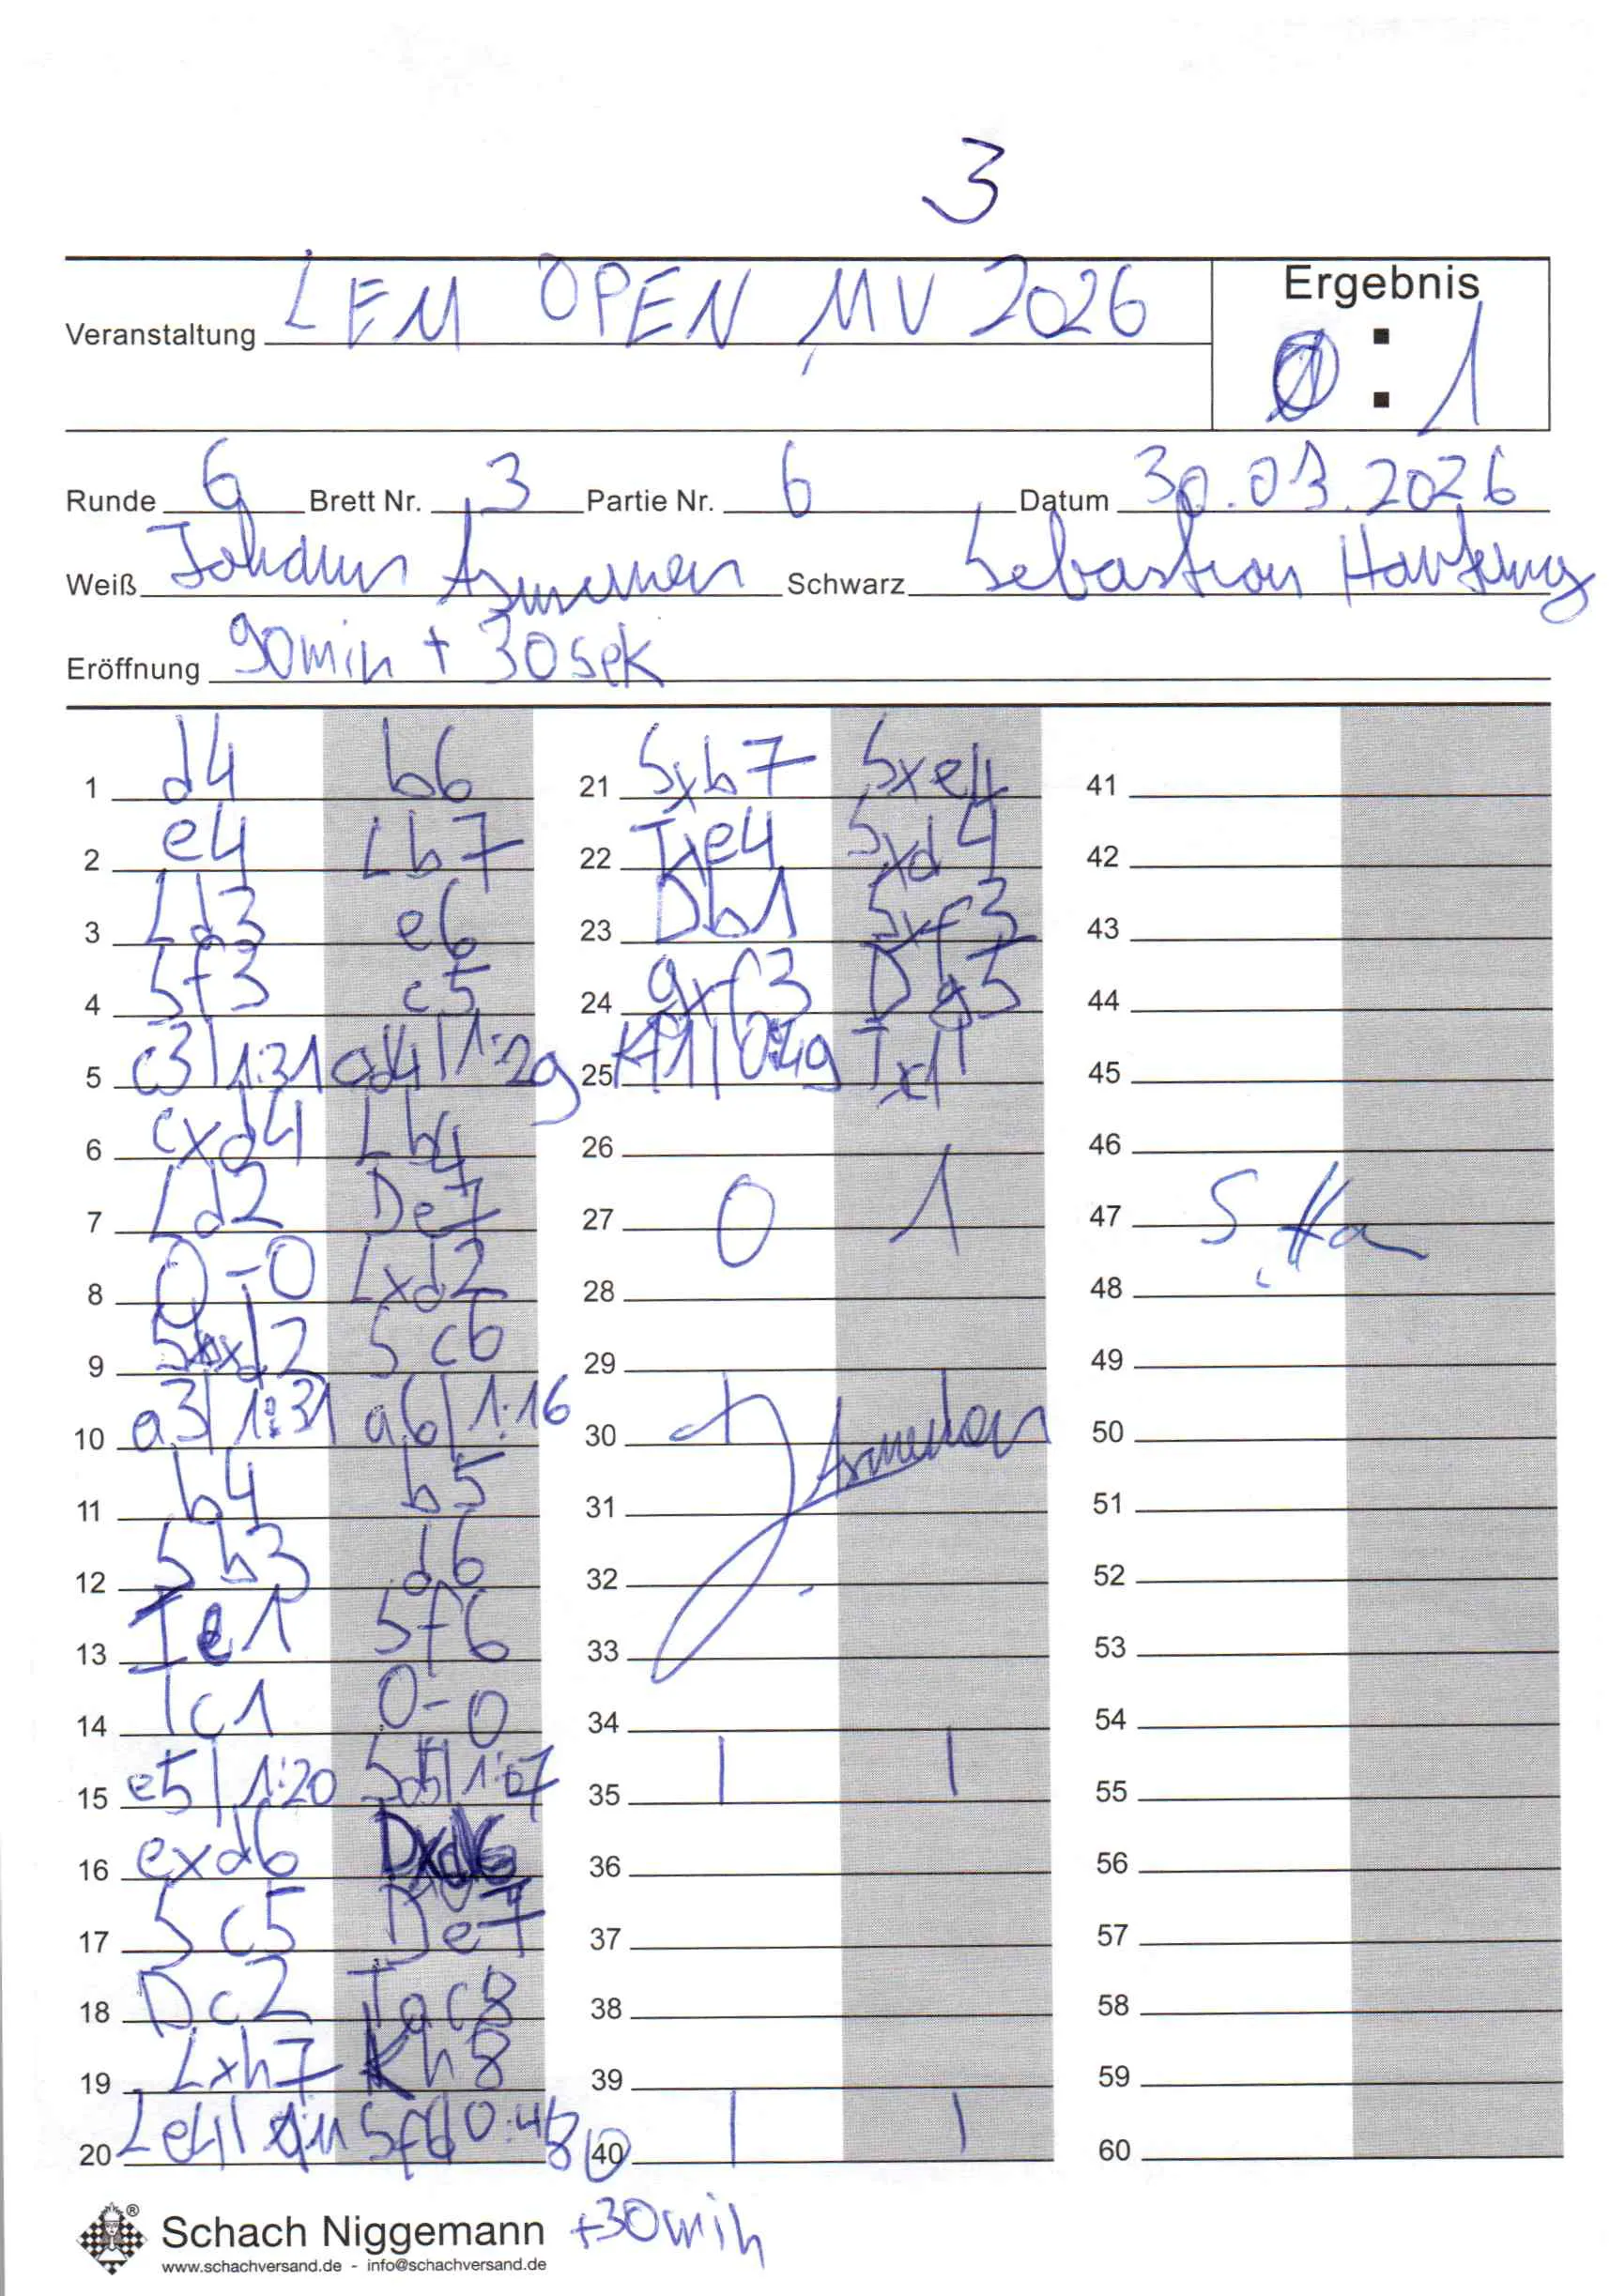 3
LEM OPEN MV 2026
Ergebnis
Veranstaltung
0 : 1
Runde 6 Brett Nr. 3 Partie Nr. 6 Datum 30.03.2026
Weiß Johann Schwarz Sebastian
Eröffnung 90min + 30sek
1 d4 b6 21 Sxb7 Sxe4 41
2 e4 Lb7 22 Txe4 Sxd4 42
3 Ld3 e6 23 Db1 Sxf3 43
4 Sf3 c5 24 gxf3 Dg5 44
5 c3|1:31 cd4|1:29 25 Kf1|0:49 Txc1 45
6 cxd4 Lb4 26 46
7 Ld2 De7 27 0 1 47 S. Ha
8 0-0 Lxd2 28 48
9 Sbxd2 Sc6 29 49
10 a3|1:31 a6|1:16 30 50
11 b4 b5 31 51
12 Sb3 d6 32 52
13 Te1 Sf6 33 53
14 Tc1 0-0 34 54
15 e5|1:20 Sd5|1:07 35 | | 55
16 exd6 Dxd6 36 56
17 Sc5 De7 37 57
18 Dc2 Tac8 38 58
19 Lxh7 Kh8 39 59
20 Le4| Sf6|0:48 40 | | 60
Schach Niggemann ® +30min
www.schachversand.de - info@schachversand.de